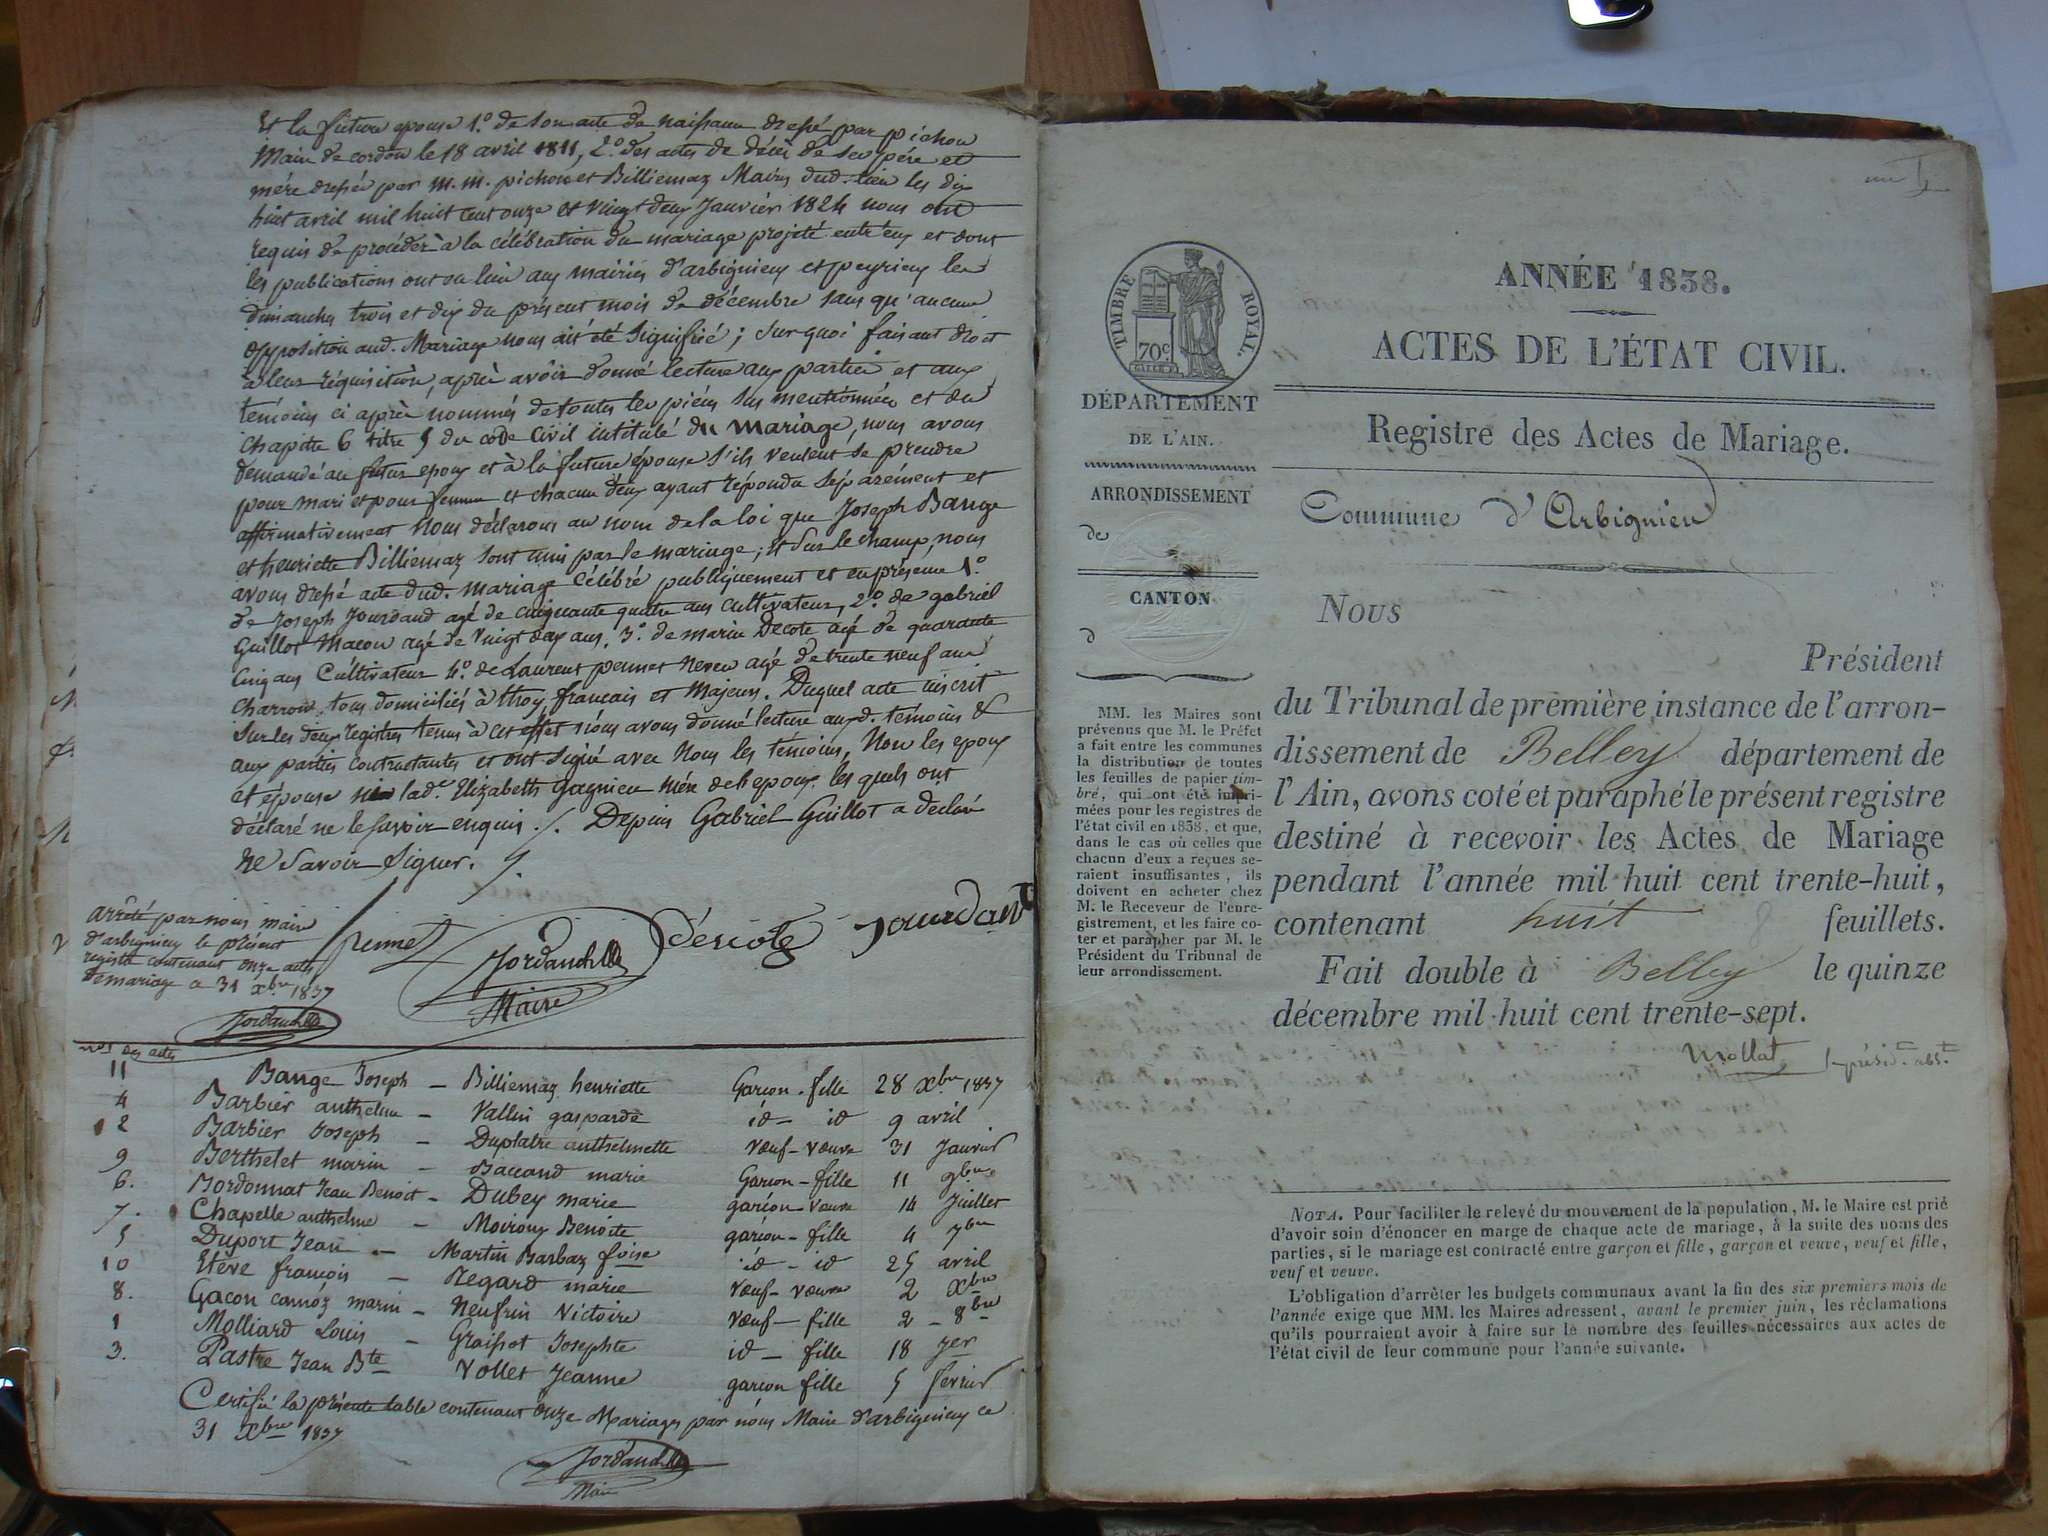 Et la future epouse 1.° de son acte de naissance dressé par pichon
Maire de cordon le 18 avril 1811, 2.° des actes de décès de ses père et
mère dressés par m.m. pichon et Billiemaz Maires dud. lieu les dix
huit avril mil huit cent onze et vingt deux Janvier 1824 nous ont
requis de procéder à la célébration du mariage projeté entr'eux et dont
les publications ont eu lieu aux mairies d'arbignieu et peyrieu les
dimanches trois et dix du présent mois de décembre sans qu'aucune
opposition aud. Mariage nous ait été signifiée ; sur quoi faisant droit
à leur réquisition, après avoir donné lecture aux parties et aux
temoins ci après nommés de toutes les pièces sus mentionnées et du
chapitre 6 titre 5 du code civil intitulé du Mariage, nous avons
demandé au futur epoux et à la future épouse s'ils veulent se prendre
pour mari et pour femme et chacun d'eux ayant répondu séparément et
affirmativement Nous déclarons au nom de la loi que Joseph Bange
et henriette Billiemaz sont unis par le mariage ; et sur le champ, nous
avons dressé acte dud. mariage célébré publiquement et en présence 1.°
de Joseph Jourdand agé de cinquante quatre ans cultivateur, 2.° de gabriel
Guillot Macon agé de vingt deux ans, 3.° de marin Decote agé de quarante
Cinq ans Cultivateur 4.° de Laurent pennet neveu agé de trente neuf ans
charron, tous domiciliés à thoy, francais et Majeurs. Duquel acte inscrit
Sur les deux registres tenus à cet effet nous avons donné lecture auxd. témoins &
aux parties contractantes et ont signé avec Nous les témoins, Non les epoux
et épouse ni lad.e Elizabeth Gagnieu mère de l'epoux les quels ont
déclaré ne le savoir enquis ./. Depuis Gabriel Guillot a déclaré
ne Savoir Signer. /.
arrêté par nous maire
d'arbignieu le présent
registre contenant onze actes
de mariage a 31 xbre 1837
pennet
Maire
Décote
Jourdant
nos des actes
11 Bange Joseph – Billiemaz henriette Garcon - fille 28 xbre 1837
4 Barbier anthelme – Vallin gasparde id – id 9 avril
2 Barbier Joseph – Duplatre anthelmette vœuf - vœuve 31 Janvier
9 Berthelet marin – Baccand marie Garcon – fille 11 9bre
6. Bordonnat Jean Benoit – Dubey marie garcon - vœuve 14 Juillet
7. Chapelle anthelme – Moiroux Benoite garcon – fille 4 7bre
5 Duport Jean – Martin Barbaz foise id – id 25 avril
10 Etève françois – Regard marie vœuf – vœuve 2 xbre
8. Gacon camoz marin – Neufrin Victoire vœuf – fille 2 – 8bre
1 Molliard Louis – Graissot Josephte id – fille 18 Jer
3. Pastre Jean Bte Vollet Jeanne garcon fille 5 fevrier
Certifié la présente table contenant onze Mariages par nous Maire d'arbignieu ce
31 xbre 1837
Maire
TIMBRE ROYAL.
70c.
DÉPARTEMENT
DE L'AIN.
ARRONDISSEMENT
de
CANTON
d
MM. les Maires sont
prévenus que M. le Préfet
a fait entre les communes
la distribution de toutes
les feuilles de papier tim-
bré, qui ont été impri-
mées pour les registres de
l'état civil en 1838, et que,
dans le cas où celles que
chacun d'eux a reçues se-
raient insuffisantes, ils
doivent en acheter chez
M. le Receveur de l'enre-
gistrement, et les faire co-
ter et parapher par M. le
Président du Tribunal de
leur arrondissement.
ANNÉE 1838.
ACTES DE L'ÉTAT CIVIL.
Registre des Actes de Mariage.
Commune d'Arbignieu
Nous
Président
du Tribunal de première instance de l'arron-
dissement de Belley département de
l'Ain, avons coté et paraphé le présent registre
destiné à recevoir les Actes de Mariage
pendant l'année mil huit cent trente-huit,
contenant huit 8 feuillets.
Fait double à Belley le quinze
décembre mil huit cent trente-sept.
Mollat
NOTA. Pour faciliter le relevé du mouvement de la population, M. le Maire est prié
d'avoir soin d'énoncer en marge de chaque acte de mariage, à la suite des noms des
parties, si le mariage est contracté entre garçon et fille, garçon et veuve, veuf et fille,
veuf et veuve.
L'obligation d'arrêter les budgets communaux avant la fin des six premiers mois de
l'année exige que MM. les Maires adressent, avant le premier juin, les réclamations
qu'ils pourraient avoir à faire sur le nombre des feuilles nécessaires aux actes de
l'état civil de leur commune pour l'année suivante.